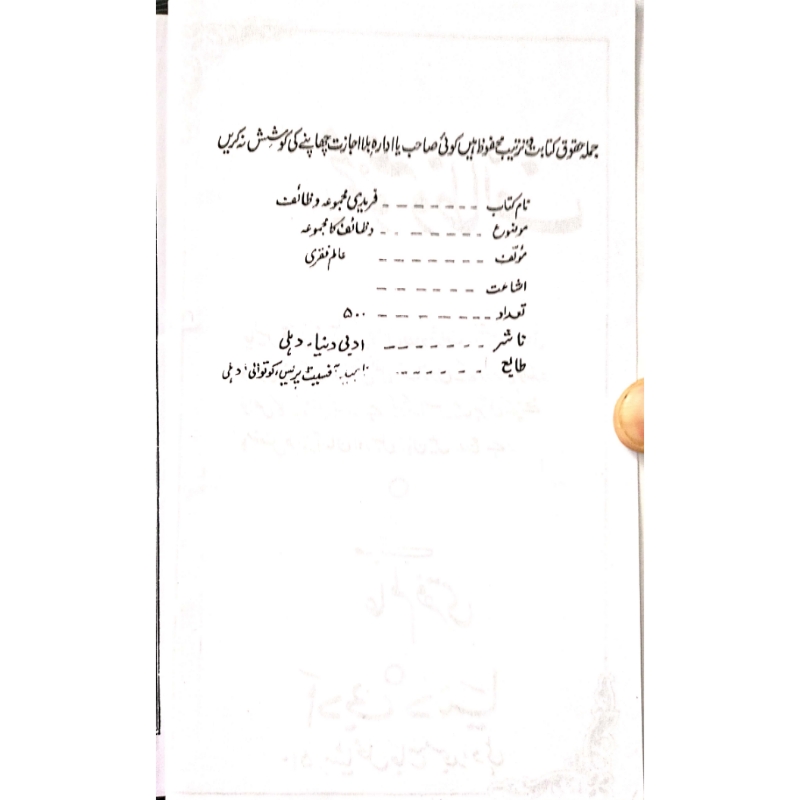 جملہ حقوق کتابت و ترتیب محفوظ ہیں کوئی صاحب یا ادارہ بلا اجازت چھاپنے کی کوشش نہ کریں
نام کتاب ------- فریدی مجموعہ وظائف
موضوع ------- وظائف کا مجموعہ
مؤلف ------- عالم فقری
اشاعت -------
تعداد ------- ۵۰۰
ناشر ------- ادبی دنیا۔ دہلی
طابع ------- آفسیٹ پریس، کوتوانی، دہلی